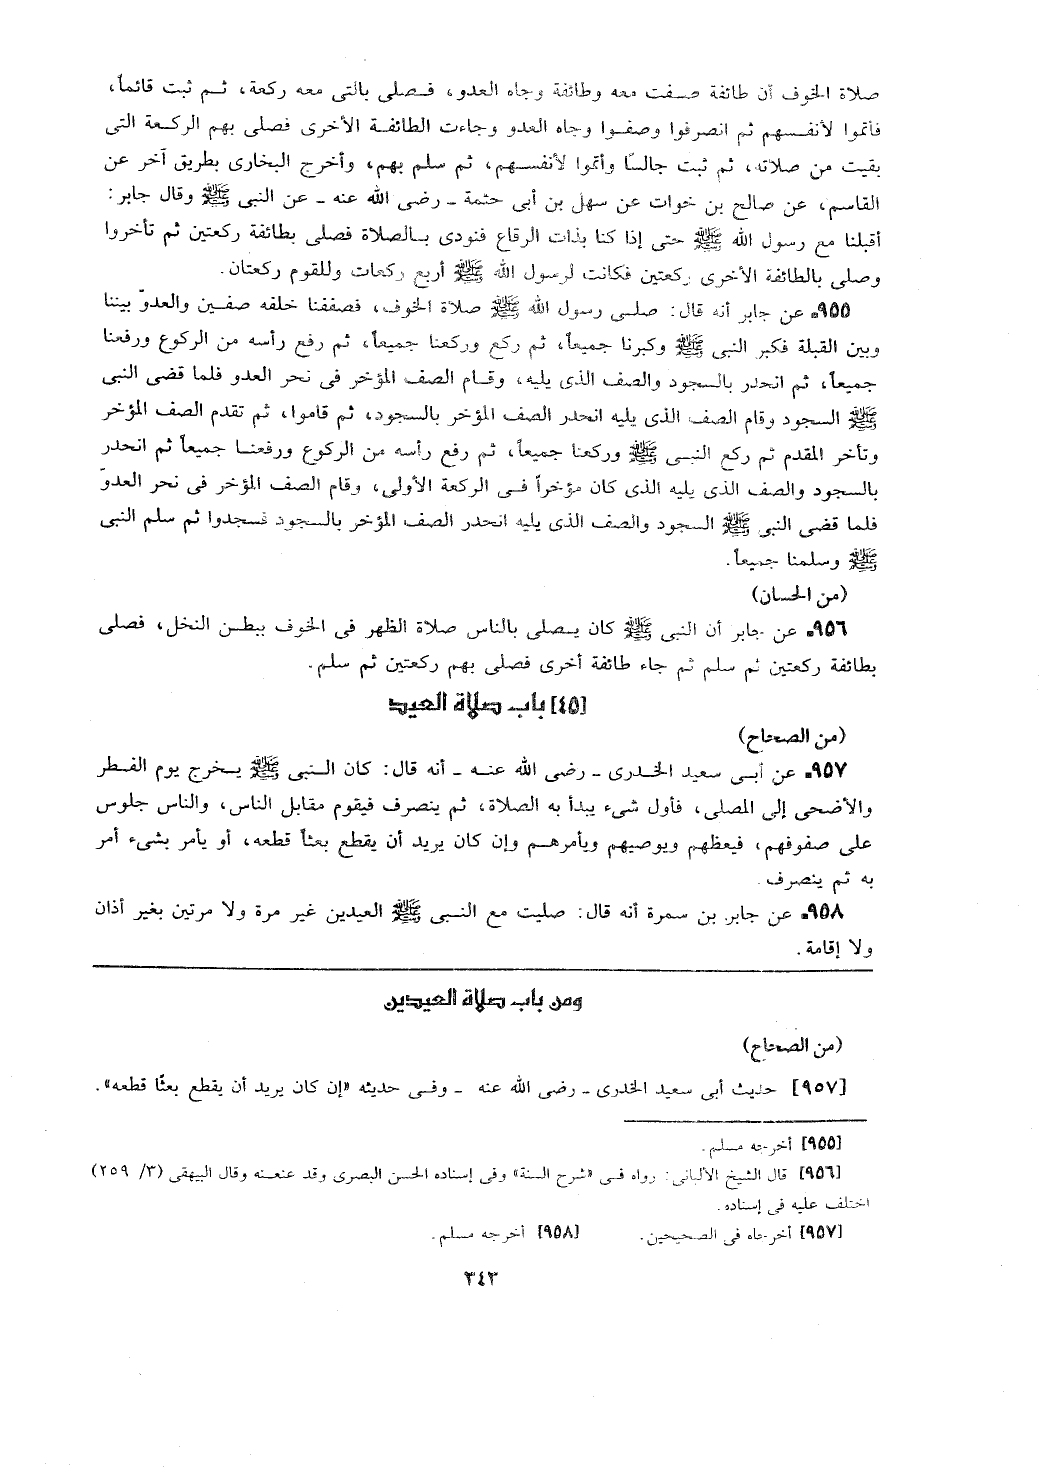 صلاة الخوف أن طائفة صفت معه وطائفة وجاه العدو، فصلى بالتى معه ركعة، ثم ثبت قائماً،
فأتموا لأنفسهم ثم انصرفوا وصفوا وجاه العدو وجاءت الطائفة الأخرى فصلى بهم الركعة التى
بقيت من صلاته، ثم ثبت جالسًا وأتموا لأنفسهم، ثم سلم بهم، وأخرج البخارى بطريق آخر عن
القاسم، عن صالح بن خوات عن سهل بن أبى حثمة ـ رضى الله عنه ـ عن النبى ﷺ وقال جابر:
أقبلنا مع رسول الله ﷺ حتى إذا كنا بذات الرقاع فنودى بالصلاة فصلى بطائفة ركعتين ثم تأخروا
وصلى بالطائفة الأخرى ركعتين فكانت لرسول الله ﷺ أربع ركعات وللقوم ركعتان.
٩٥٥ـ عن جابر أنه قال: صلى رسول الله ﷺ صلاة الخوف، فصففنا خلفه صفين والعدوّ بيننا
وبين القبلة فكبر النبى ﷺ وكبرنا جميعاً، ثم ركع وركعنا جميعاً، ثم رفع رأسه من الركوع ورفعنا
جميعاً، ثم انحدر بالسجود والصف الذى يليه، وقام الصف المؤخر فى نحر العدو فلما قضى النبى
ﷺ السجود وقام الصف الذى يليه انحدر الصف المؤخر بالسجود، ثم قاموا، ثم تقدم الصف المؤخر
وتأخر المقدم ثم ركع النبى ﷺ وركعنا جميعاً، ثم رفع رأسه من الركوع ورفعنا جميعاً ثم انحدر
بالسجود والصف الذى يليه الذى كان مؤخراً فى الركعة الأولى، وقام الصف المؤخر فى نحر العدوّ
فلما قضى النبى ﷺ السجود والصف الذى يليه انحدر الصف المؤخر بالسجود فسجدوا ثم سلم النبى
ﷺ وسلمنا جميعاً.
(من الحسان)
٩٥٦ـ عن جابر أن النبى ﷺ كان يصلى بالناس صلاة الظهر فى الخوف ببطن النخل، فصلى
بطائفة ركعتين ثم سلم ثم جاء طائفة أخرى فصلى بهم ركعتين ثم سلم.
[٤٥] باب صلاة العيد
(من الصحاح)
٩٥٧ـ عن أبى سعيد الخدرى ـ رضى الله عنه ـ أنه قال: كان النبى ﷺ يخرج يوم الفطر
والأضحى إلى المصلى، فأول شىء يبدأ به الصلاة، ثم ينصرف فيقوم مقابل الناس، والناس جلوس
على صفوفهم، فيعظهم ويوصيهم ويأمرهم وإن كان يريد أن يقطع بعثاً قطعه، أو يأمر بشىء أمر
به ثم ينصرف.
٩٥٨ـ عن جابر بن سمرة أنه قال: صليت مع النبى ﷺ العيدين غير مرة ولا مرتين بغير أذان
ولا إقامة.
ومن باب صلاة العيدين
(من الصحاح)
[٩٥٧] حديث أبى سعيد الخدرى ـ رضى الله عنه ـ وفى حديثه «إن كان يريد أن يقطع بعثًا قطعه».
[٩٥٥] أخرجه مسلم.
[٩٥٦] قال الشيخ الألبانى: رواه فى «شرح السنة» وفى إسناده الحسن البصرى وقد عنعنه وقال البيهقى (٣/ ٢٥٩)
اختلف عليه فى إسناده.
[٩٥٧] أخرجاه فى الصحيحين. [٩٥٨] أخرجه مسلم.
٣٤٣